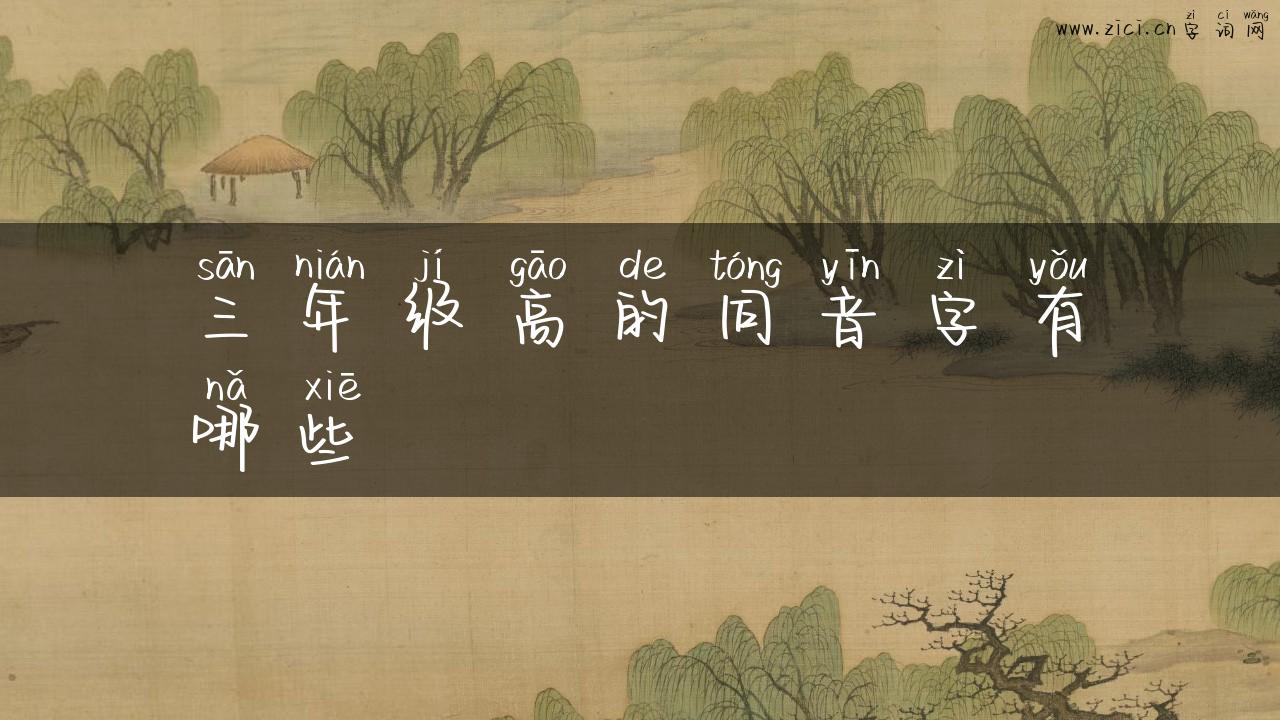 zì cí wǎng
www.zici.cn 字词网
sān nián jí gāo de tóng yīn zì yǒu
三年级高的同音字有
nǎ xiē
哪些